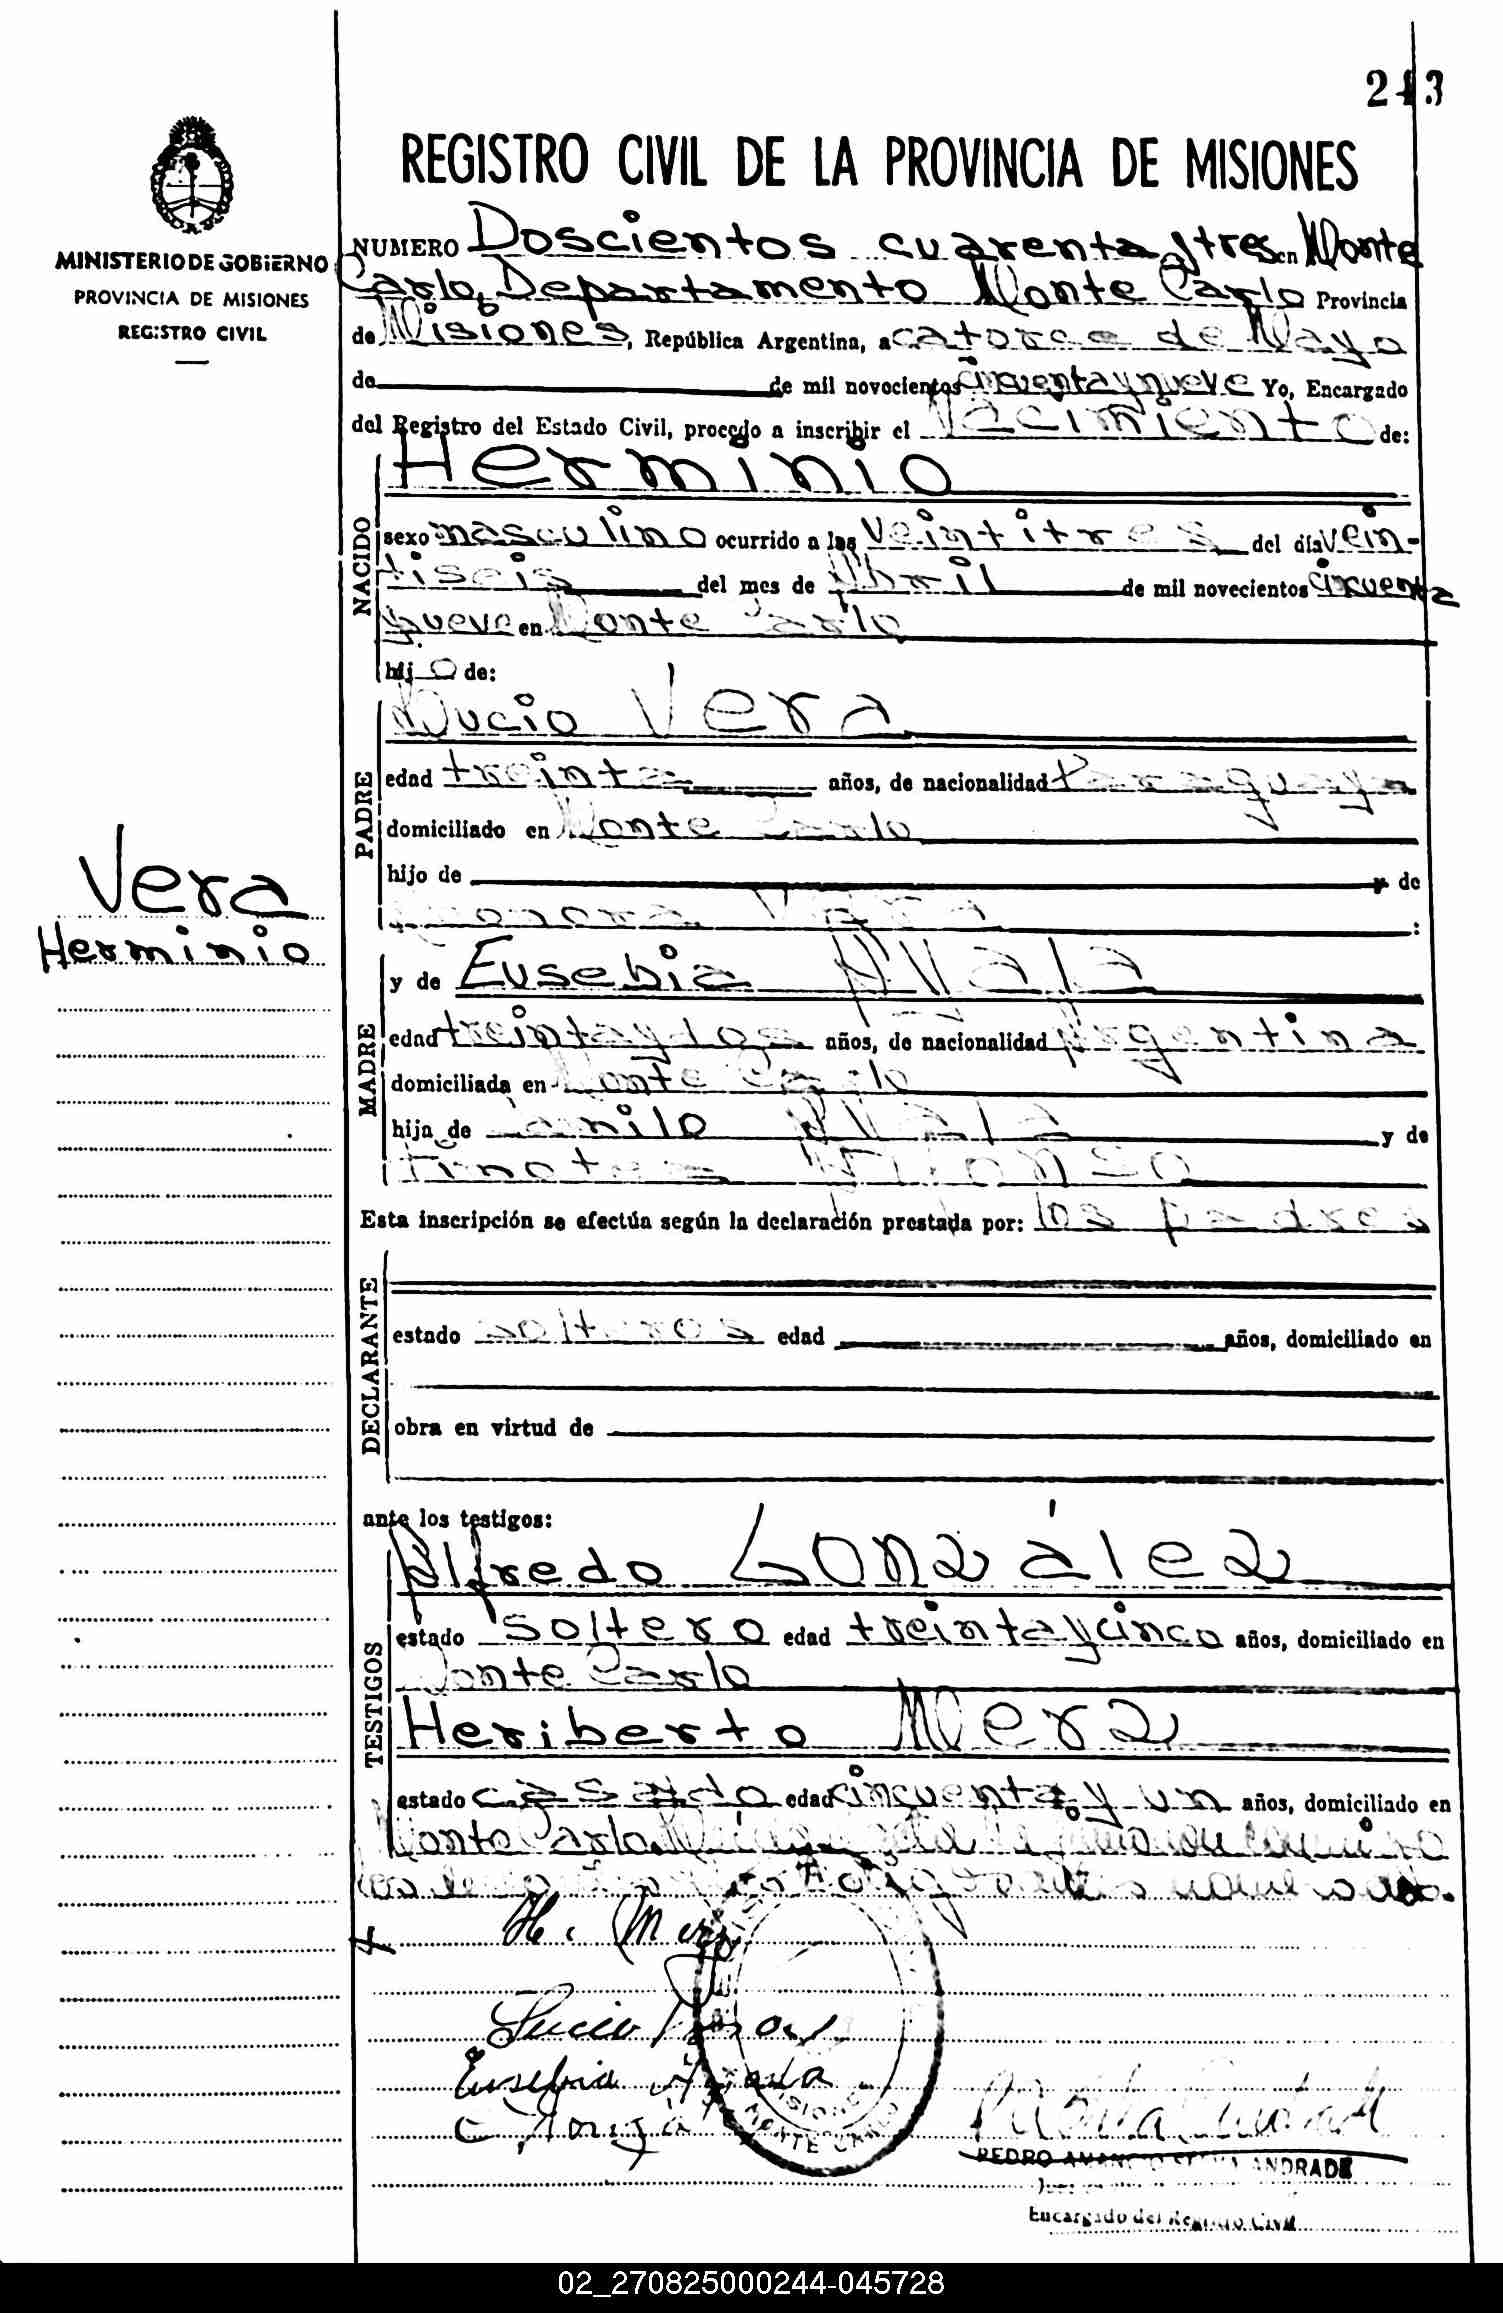 243
REGISTRO CIVIL DE LA PROVINCIA DE MISIONES
MINISTERIO DE GOBIERNO
PROVINCIA DE MISIONES
REGISTRO CIVIL
NUMERO Doscientos cuarenta y tres en Monte
Carlo, Departamento Monte Carlo Provincia
de Misiones, República Argentina, a catorce de Mayo
de de mil novocientos cincuenta y nueve Yo, Encargado
del Registro del Estado Civil, procedo a inscribir el Nacimiento de:
Herminio
NACIDO
sexo masculino ocurrido a las veintitres del día vein-
tiseis del mes de Abril de mil novecientos cincuenta
y nueve en Monte Carlo
hijo de:
Lucio Vera
PADRE
edad treinta años, de nacionalidad Paraguaya
domiciliado en Monte Carlo
hijo de y de
Vera :
Vera
Herminio
y de Eusebia Ayala
MADRE
edad treinta y dos años, de nacionalidad Argentina
domiciliada en Monte Carlo
hija de Camilo Ayala y de
Timotea
Esta inscripción se efectúa según la declaración prestada por: los padres
DECLARANTE
estado solteros edad años, domiciliado en
obra en virtud de
ante los testigos:
Alfredo González
TESTIGOS
estado soltero edad treinta y cinco años, domiciliado en
Monte Carlo
Heriberto Merz
estado casado edad cincuenta y un años, domiciliado en
Monte Carlo
H. Merz
Lucio Vera
Eusebia Ayala
MISIONES
MONTE CARLO
PEDRO AMANCIO SILVA ANDRADE
Encargado del Registro Civil
02_270825000244-045728